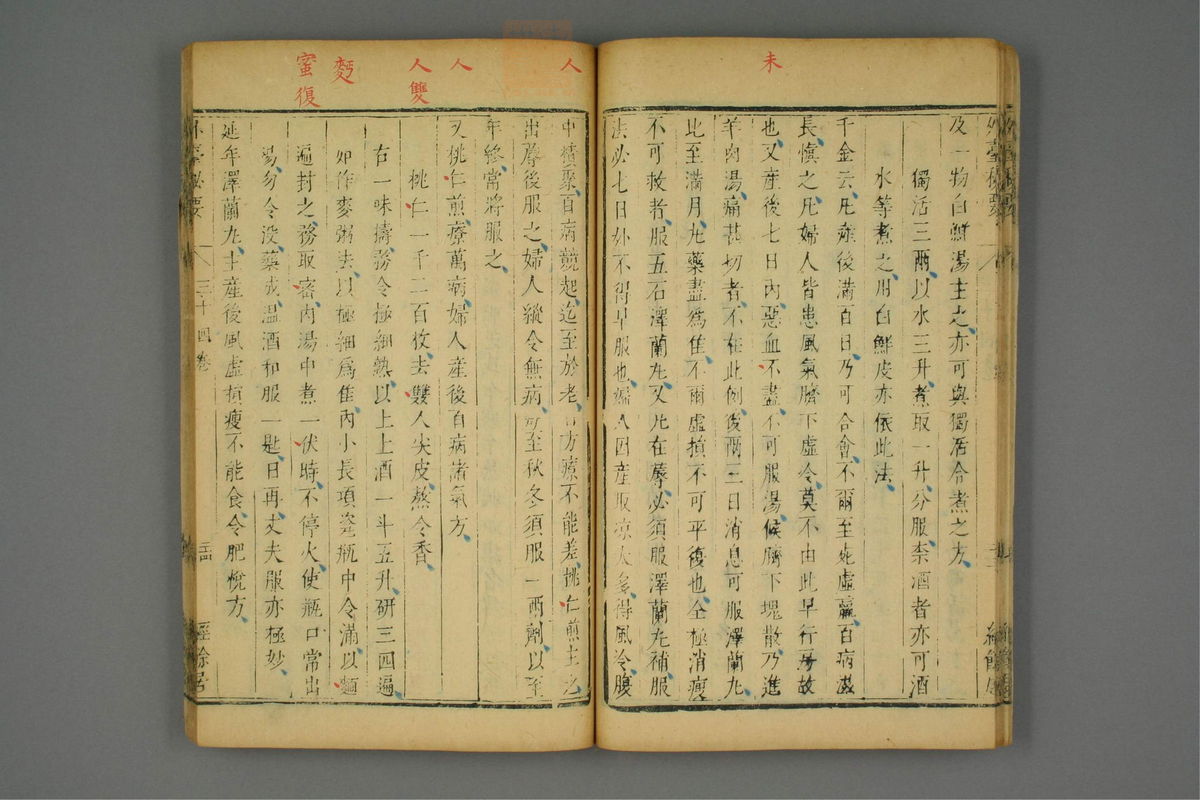 未
及一物白鮮湯主之亦可與獨活合煮之方
獨活三兩以水三升煮取一升分服柰酒者亦可酒
水等煮之用白鮮皮亦依此法
千金云凡産後滿百日乃可合會不爾至死虛羸百病滋
長慎之凡婦人皆患風氣臍下虛令莫不由此早行房故
也又産後七日內惡血不盡不可服湯候臍下塊散乃進
羊肉湯痛甚切者不在此例後兩三日消息可服澤蘭丸
比至滿月丸藥盡爲佳不爾虛損不可平復也全極消瘦
不可救者服五石澤蘭丸又凡在蓐必須服澤蘭丸補服
法必七日外不得早服也婦人因産取凉太多得風冷腹
人
人
人雙
麪
蜜復
中積聚百病競起迄至於老百方療不能差挑仁煎主之
出蓐後服之婦人縱令無病可至秋冬須服一兩劑以至
年終常將服之
又桃仁煎療萬病婦人産後百病諸氣方
桃仁一千二百枚去雙人尖皮熬令香
右一味擣務令極細熟以上上酒一斗五升研三四遍
如作麥粥法以極細爲佳內小長項瓷瓶中令滿以麵
遍封之務取密內湯中煮一伏時不停火使瓶口常出
湯勿令没藥成温酒和服一匙日再丈夫服亦極妙
延年澤蘭丸主産後風虛損瘦不能食令肥悅方
外臺秘要
三十四卷
經餘居